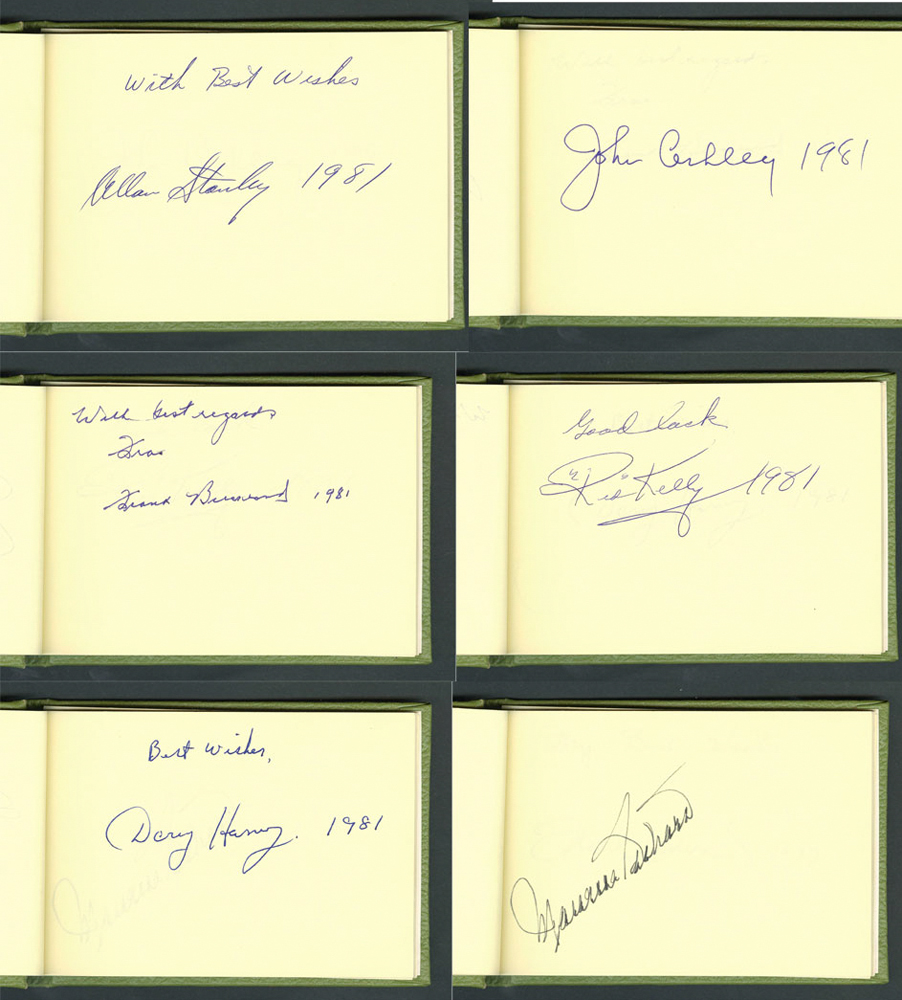 With Best Wishes
Allan Stanley 1981
John Ashley 1981
With best regards
Frank 1981
Good luck
"Red" Kelly 1981
Best Wishes,
Harvey. 1981